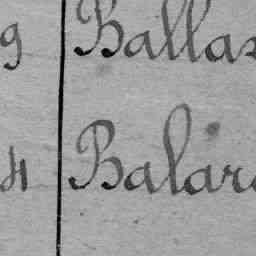 9 Ballas
4 Balar